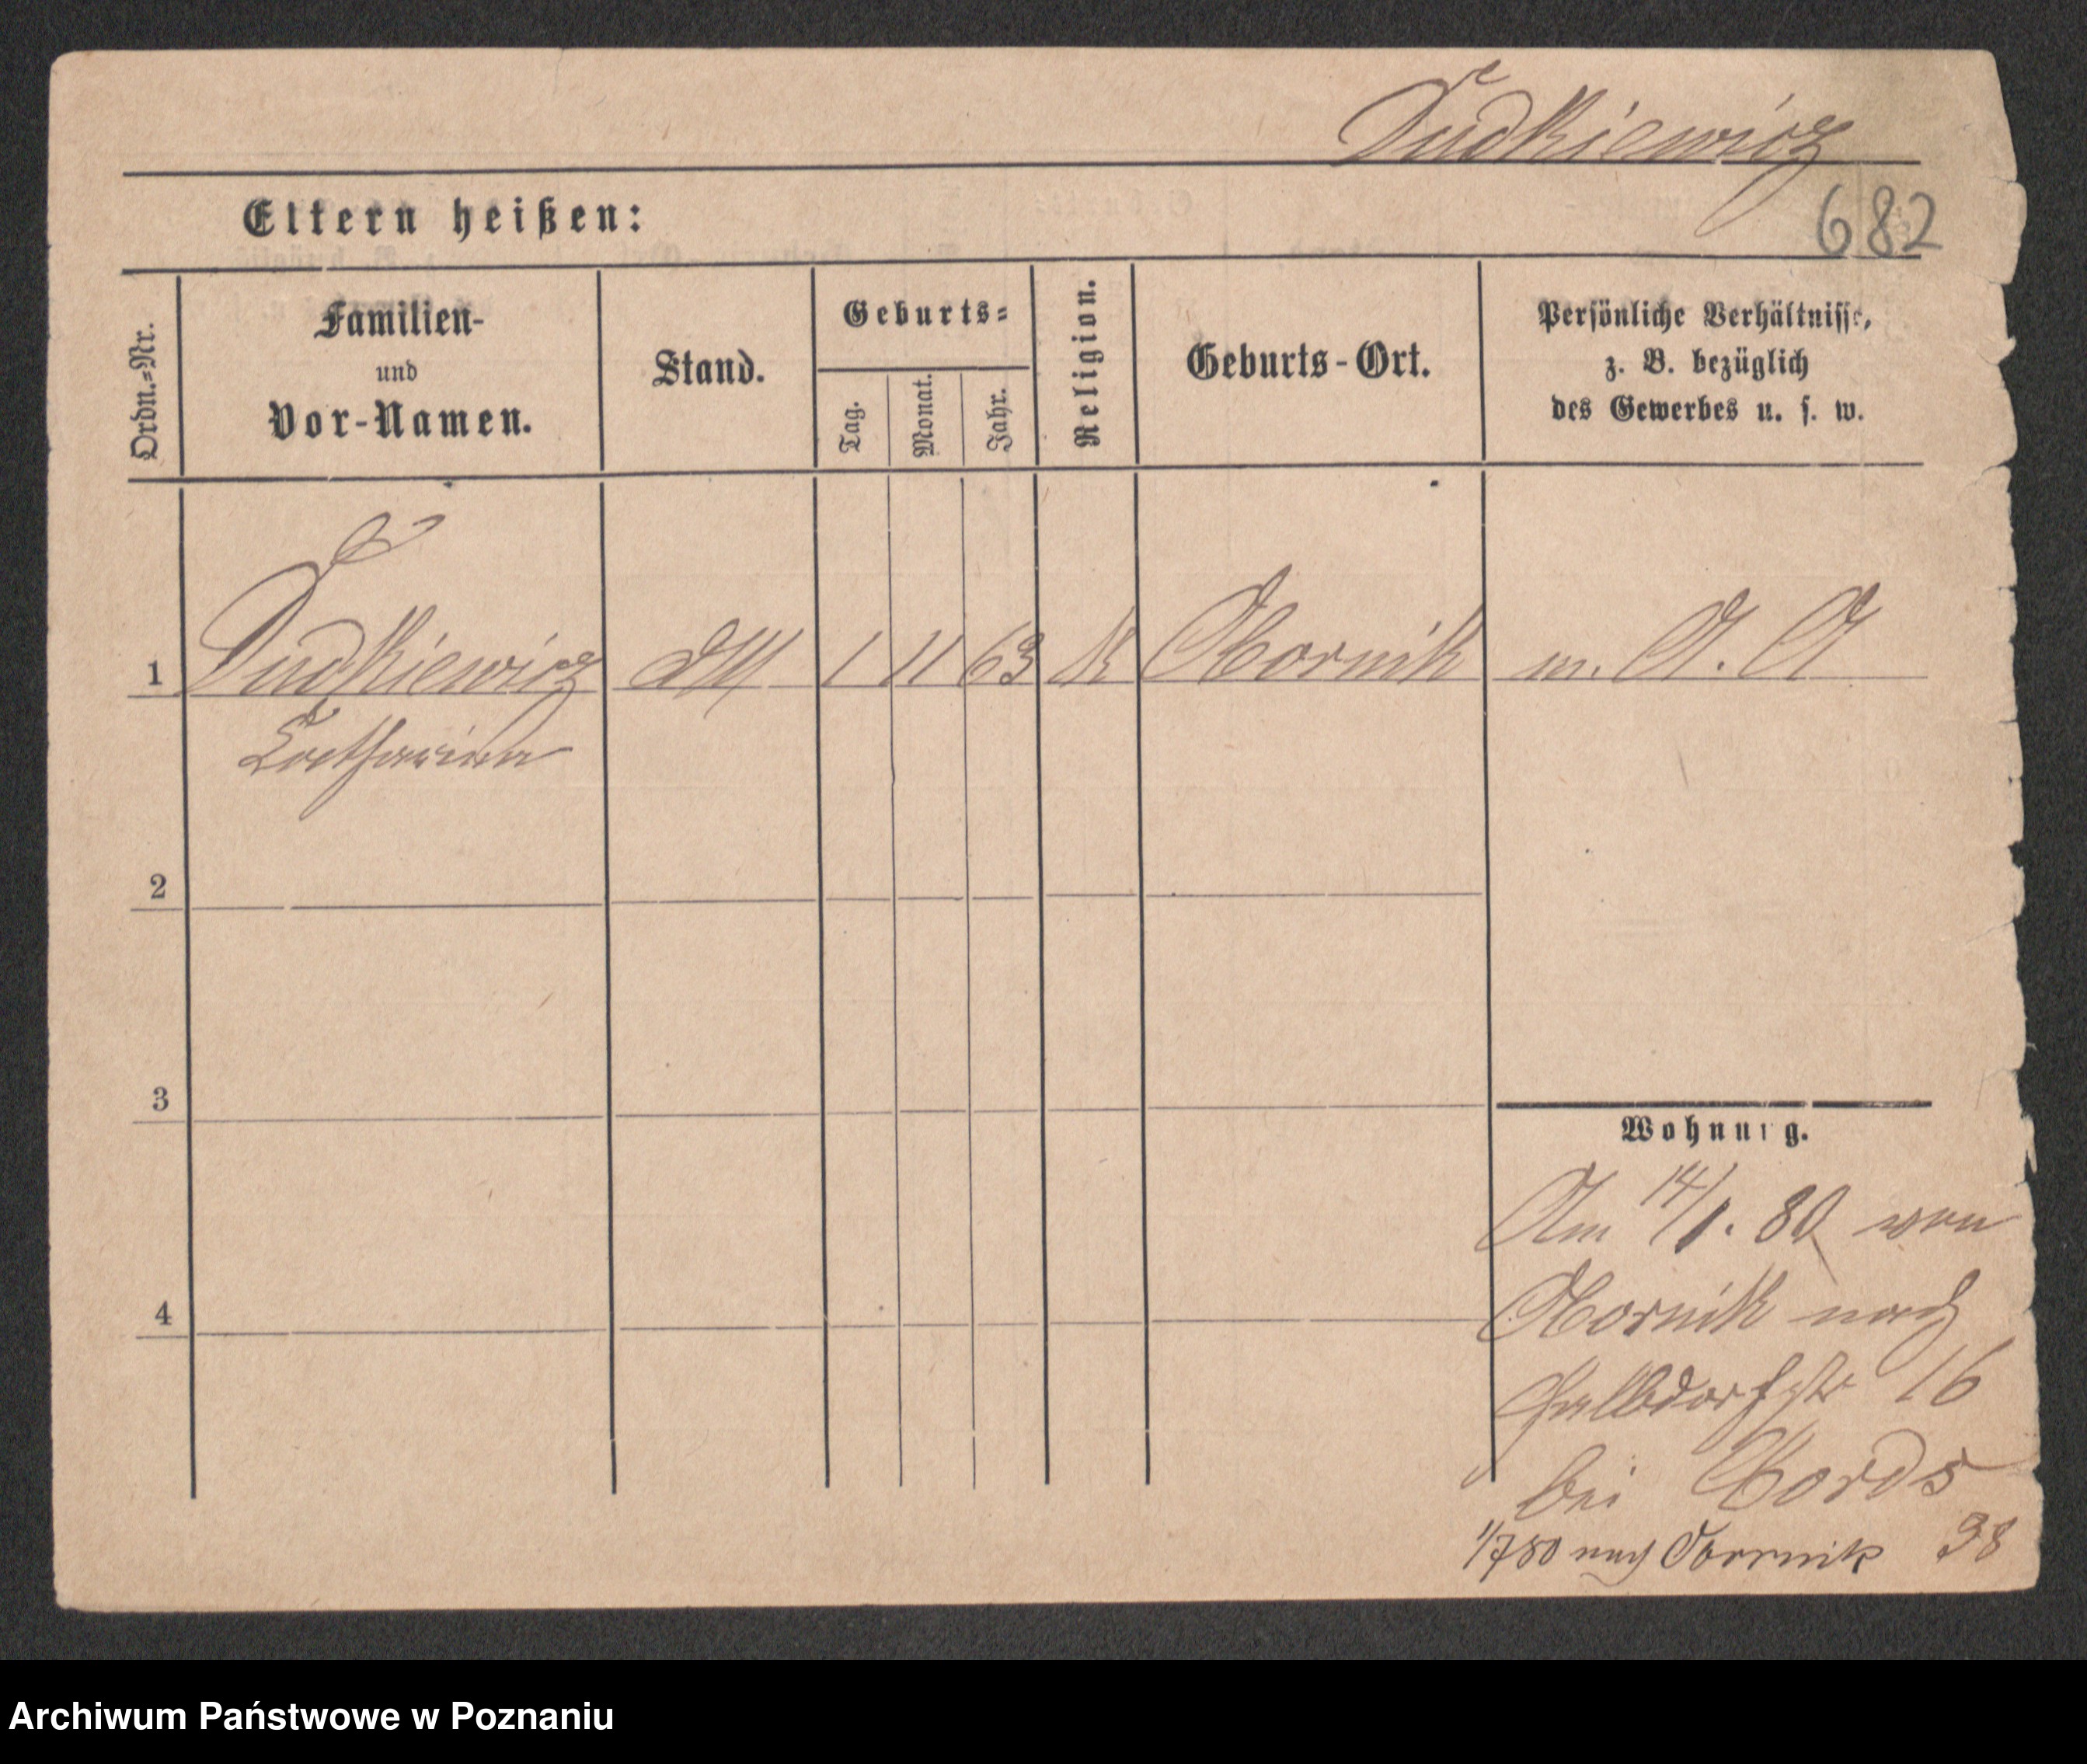 Dudkiewicz
682
Eltern heißen:
Ordn.-Nr.
Familien-
und
Vor-Namen.
Stand.
Geburts-
Tag.
Monat.
Jahr.
Religion.
Geburts-Ort.
Persönliche Verhältnisse,
z. B. bezüglich
des Gewerbes u. s. w.
1 Dudkiewicz dM 1 11 63 K Obornik m. A. A
Catharina
2
3
4
Wohnung.
Am 14/1. 80 von
Obornik nach
Halbdorfstr 16
bei Cords
1/7 80 nach Obornik 98
Archiwum Państwowe w Poznaniu